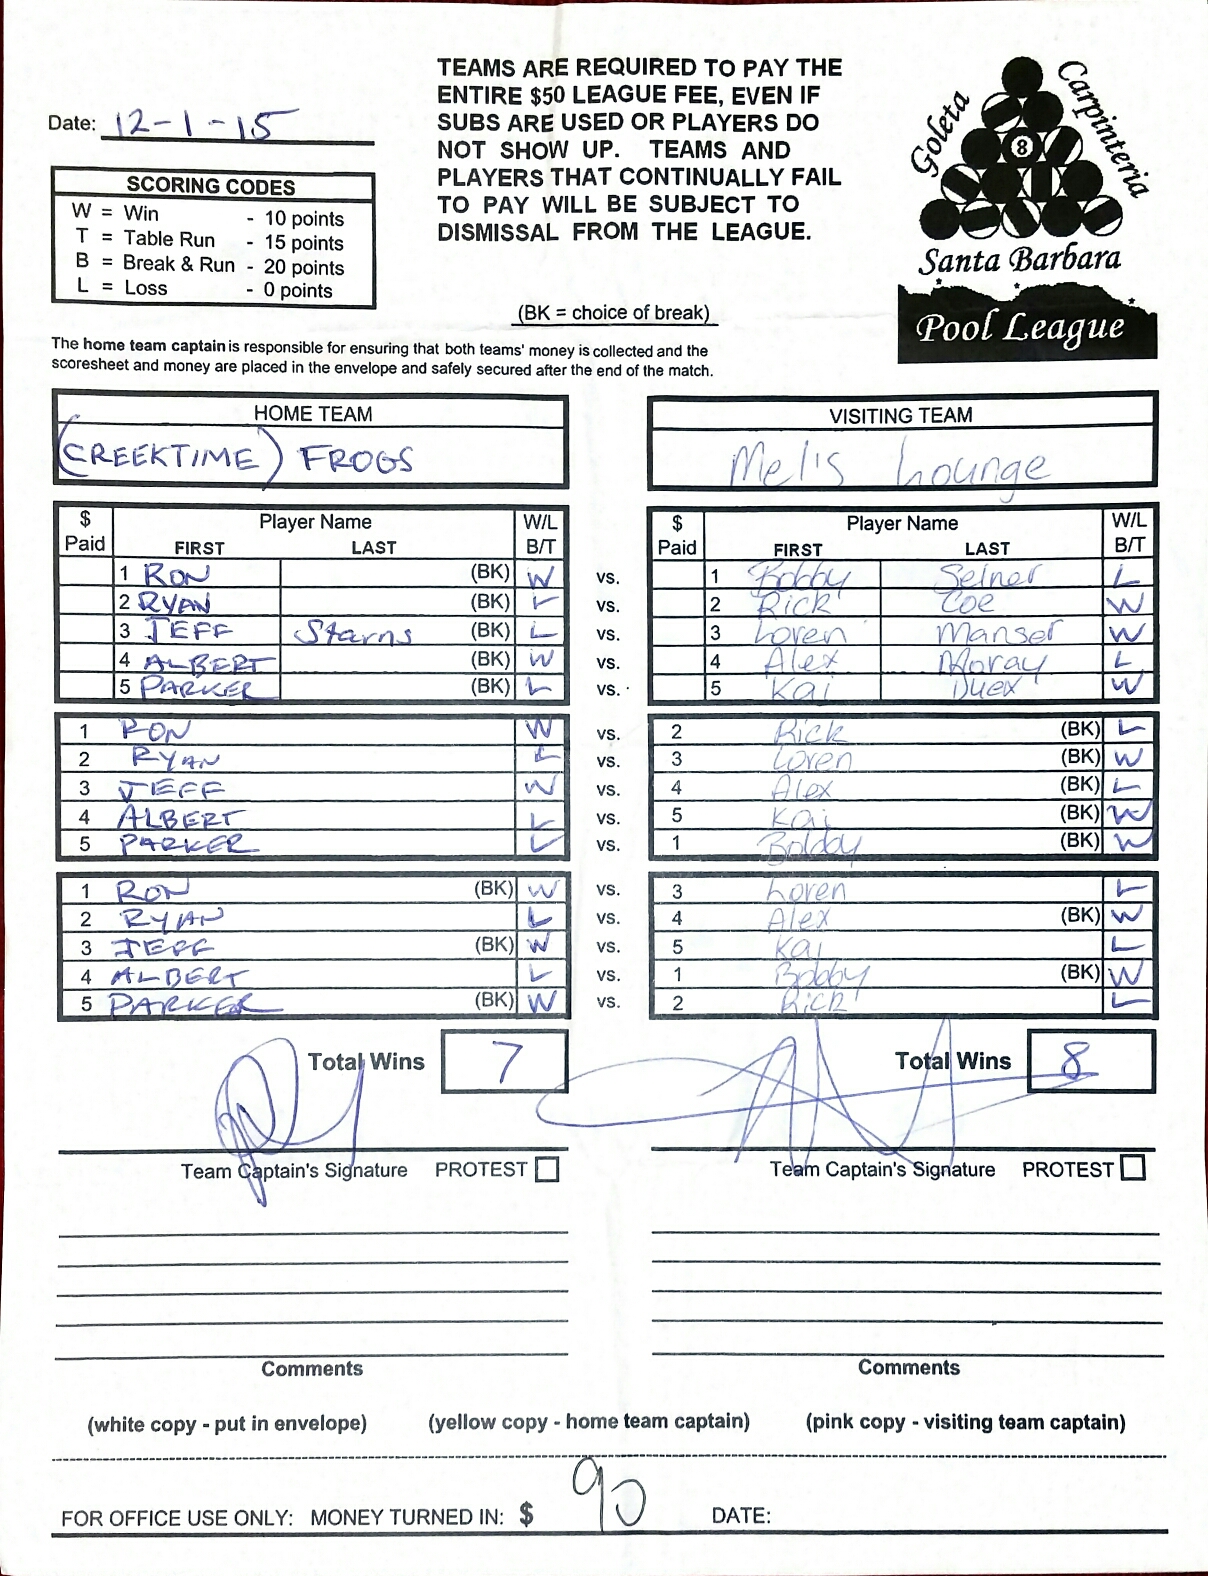 Date: 12-1-15
SCORING CODES
W = Win - 10 points
T = Table Run - 15 points
B = Break & Run - 20 points
L = Loss - 0 points
TEAMS ARE REQUIRED TO PAY THE
ENTIRE $50 LEAGUE FEE, EVEN IF
SUBS ARE USED OR PLAYERS DO
NOT SHOW UP. TEAMS AND
PLAYERS THAT CONTINUALLY FAIL
TO PAY WILL BE SUBJECT TO
DISMISSAL FROM THE LEAGUE.
(BK = choice of break)
Goleta
Carpinteria
8
Santa Barbara
Pool League
The home team captain is responsible for ensuring that both teams' money is collected and the
scoresheet and money are placed in the envelope and safely secured after the end of the match.
HOME TEAM VISITING TEAM
(CREEKTIME) FROGS Mel's Lounge
$ Player Name W/L $ Player Name W/L
Paid FIRST LAST B/T Paid FIRST LAST B/T
1 RON (BK) W vs. 1 Bobby Selner L
2 RYAN (BK) L vs. 2 Rick Coe W
3 JEFF Starns (BK) L vs. 3 Loren Manser W
4 ALBERT (BK) W vs. 4 Alex Moray L
5 PARKER (BK) L vs. 5 Kai Duex W
1 RON W vs. 2 Rick (BK) L
2 RYAN L vs. 3 Loren (BK) W
3 JEFF W vs. 4 Alex (BK) L
4 ALBERT L vs. 5 Kai (BK) W
5 PARKER L vs. 1 Bobby (BK) W
1 RON (BK) W vs. 3 Loren L
2 RYAN L vs. 4 Alex (BK) W
3 JEFF (BK) W vs. 5 Kai L
4 ALBERT L vs. 1 Bobby (BK) W
5 PARKER (BK) W vs. 2 Rick L
Total Wins 7 Total Wins 8
Team Captain's Signature PROTEST Team Captain's Signature PROTEST
Comments Comments
(white copy - put in envelope) (yellow copy - home team captain) (pink copy - visiting team captain)
FOR OFFICE USE ONLY: MONEY TURNED IN: $ 90 DATE: